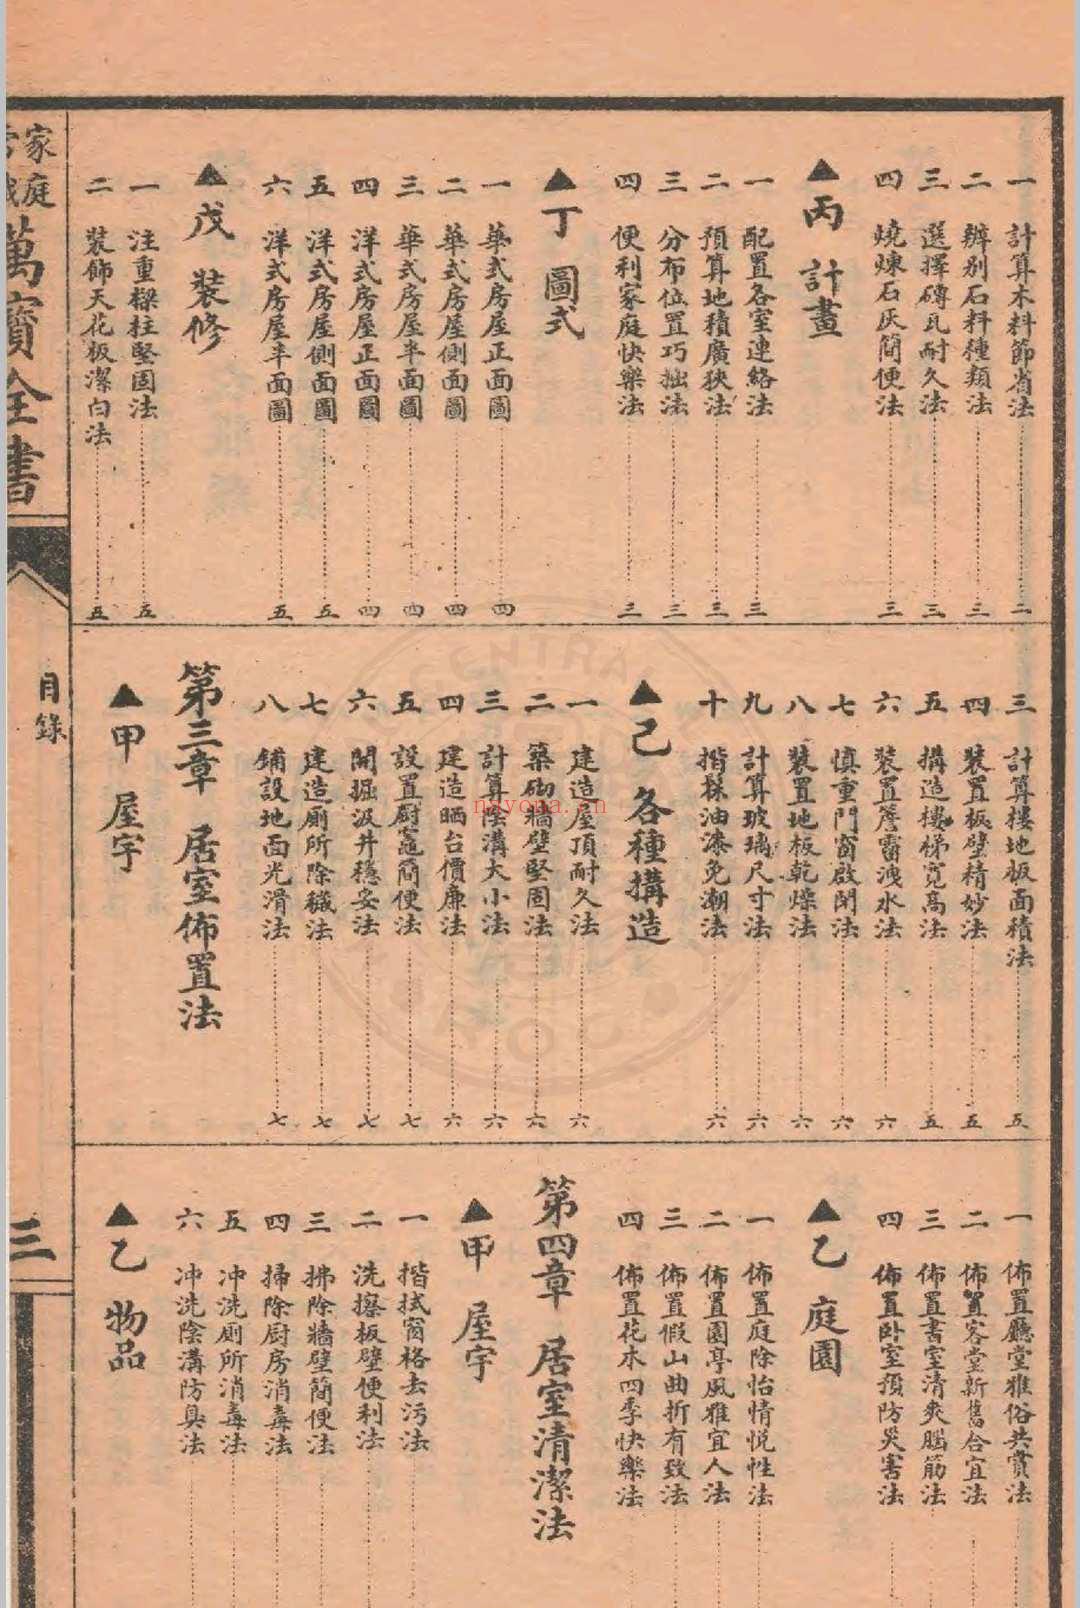 一 計算木料節省法 二
二 辦別石料種類法 三
三 選擇磚瓦耐久法 三
四 燒煉石灰簡便法 三
▲丙 計畫
一 配置各室連絡法 三
二 預算地積廣狹法 三
三 分布位置巧拙法 三
四 便利家庭快樂法 三
▲丁 圖式
一 華式房屋正面圖 四
二 華式房屋側面圖 四
三 華式房屋半面圖 四
四 洋式房屋正面圖 四
五 洋式房屋側面圖 五
六 洋式房屋半面圖 五
▲戊 裝修
一 注重樑柱堅固法 五
二 裝飾天花板潔白法 五
三 計算樓地板面積法 五
四 裝置板壁精妙法 五
五 搆造樓梯寬高法 五
六 裝置簷霤洩水法 六
七 慎重門窗啟閉法 六
八 裝置地板乾燥法 六
九 計算玻璃尺寸法 六
十 揩髹油漆免潮法 六
▲己 各種搆造
一 建造屋頂耐久法 六
二 築砌牆壁堅固法 六
三 計算陰溝大小法 六
四 建造晒台價廉法 六
五 設置厨竈簡便法 七
六 開掘汲井穩妥法 七
七 建造厠所除穢法 七
八 鋪設地面光滑法 七
第三章 居室佈置法
▲甲 屋宇
一 佈置廳堂雅俗共賞法
二 佈置客堂新舊合宜法
三 佈置書室清爽腦筋法
四 佈置卧室預防災害法
▲乙 庭園
一 佈置庭除怡情悅性法
二 佈置園亭風雅宜人法
三 佈置假山曲折有致法
四 佈置花木四季快樂法
第四章 居室清潔法
▲甲 屋宇
一 揩拭窗格去污法
二 洗擦板壁便利法
三 拂除牆壁簡便法
四 掃除厨房消毒法
五 冲洗厠所消毒法
六 冲洗陰溝防臭法
▲乙 物品
家庭
萬寶全書
目錄
三
CENTRAL
ROC
ngyona.cn